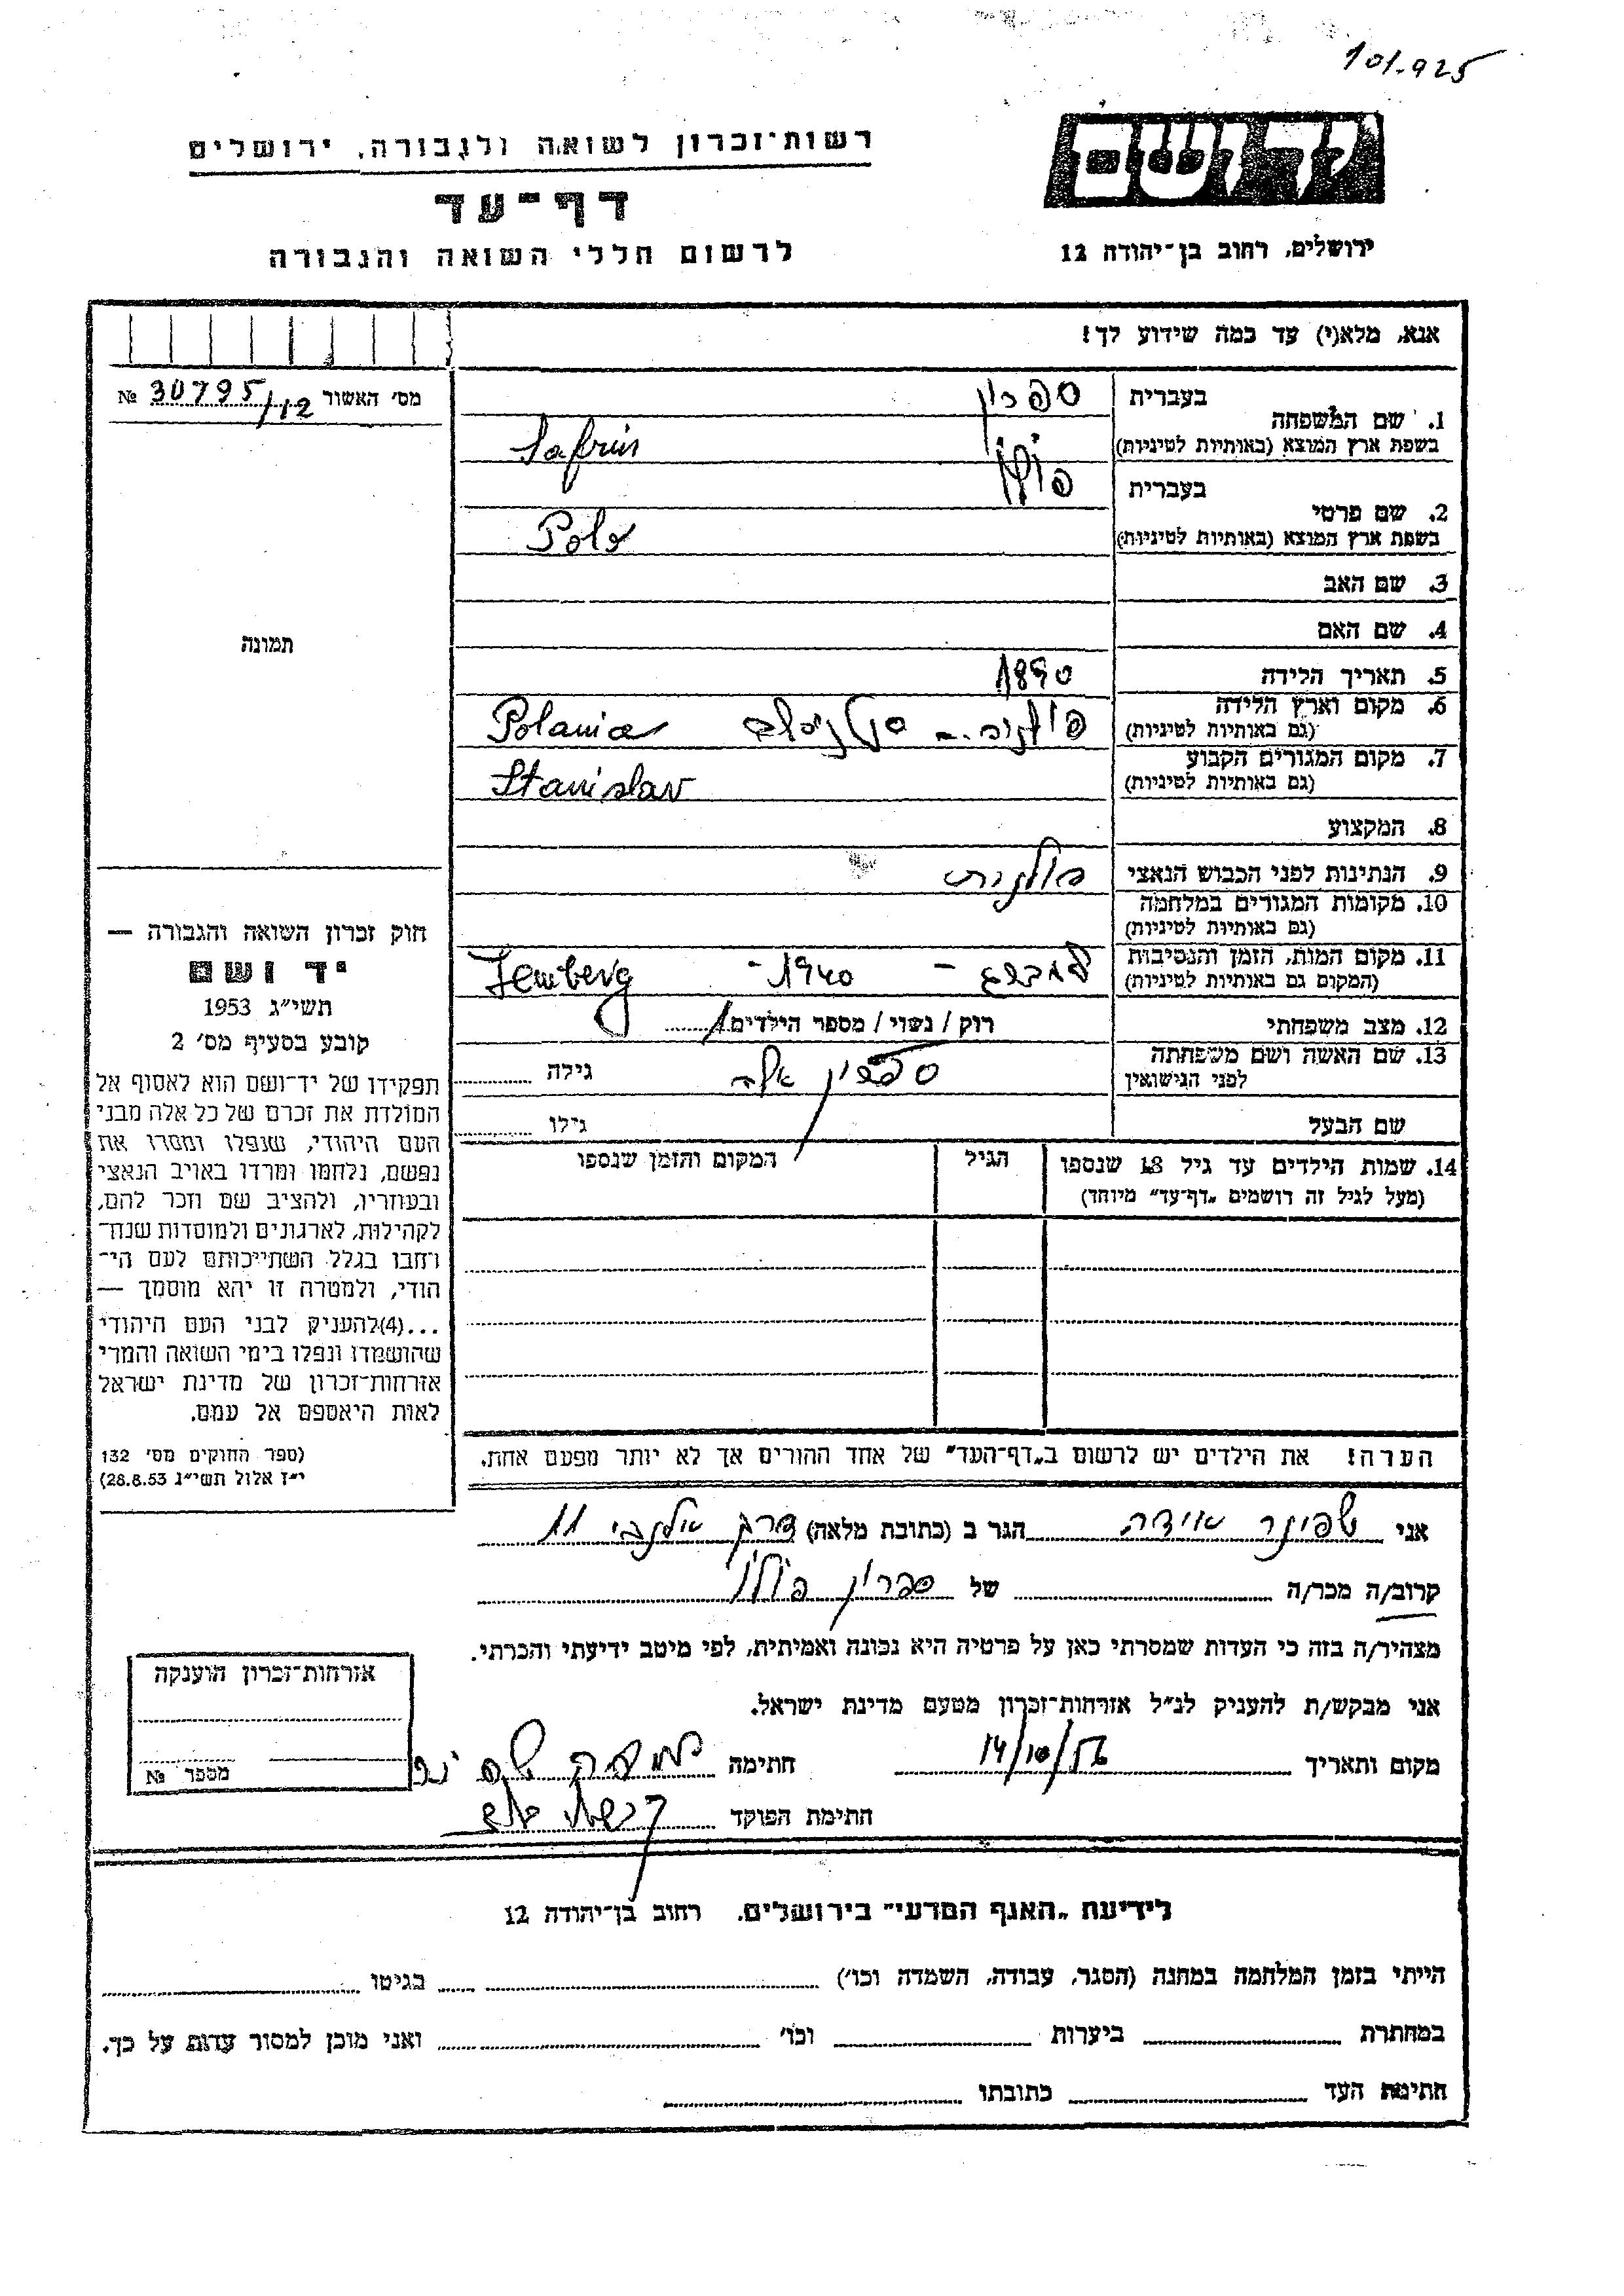 101.925
יד ושם
רשות־זכרון לשואה ולגבורה, ירושלים
דף־עד
לרשום חללי השואה והגבורה
ירושלים, רחוב בן־יהודה 12
אנא, מלא(י) עד כמה שידוע לך!
מס׳ האשור № 30795/12
1. שם המשפחה
בעברית ספרין
בשפת ארץ המוצא (באותיות לטיניות) Safrin
2. שם פרטי
בעברית פולו
בשפת ארץ המוצא (באותיות לטיניות) Polo
3. שם האב
4. שם האם
תמונה
5. תאריך הלידה 1890
6. מקום וארץ הלידה פולניה - סטניסלב Polania
(גם באותיות לטיניות)
7. מקום המגורים הקבוע Stanislav
(גם באותיות לטיניות)
8. המקצוע
9. הנתינות לפני הכבוש הנאצי פולנית
10. מקומות המגורים במלחמה
(גם באותיות לטיניות)
11. מקום המות, הזמן והנסיבות למברג - 1940 - Lemberg
(המקום גם באותיות לטיניות)
12. מצב משפחתי רוק / נשוי / מספר הילדים 1
13. שם האשה ושם משפחתה
לפני הנישואין ספרין גילה
שם הבעל גילו
14. שמות הילדים עד גיל 18 שנספו הגיל המקום והזמן שנספו
(מעל לגיל זה רושמים „דף־עד״ מיוחד)
חוק זכרון השואה והגבורה —
יד ושם
תשי״ג 1953
קובע בסעיף מס׳ 2
תפקידו של יד־ושם הוא לאסוף אל
המולדת את זכרם של כל אלה מבני
העם היהודי, שנפלו ומסרו את
נפשם, נלחמו ומרדו באויב הנאצי
ובעוזריו, ולהציב שם וזכר להם,
לקהילות, לארגונים ולמוסדות שנח־
רחבו בגלל השתייכותם לעם הי־
הודי, ולמטרה זו יהא מוסמך —
...(4)להעניק לבני העם היהודי
שהושמדו ונפלו בימי השואה והמרי
אזרחות־זכרון של מדינת ישראל
לאות היאספם אל עמם.
(ספר החוקים מס׳ 132
י״ז אלול תשי״ג 28.8.53)
הערה! את הילדים יש לרשום ב„דף־העד״ של אחד ההורים אך לא יותר מפעם אחת.
אני שפינר אידה הגר ב (כתובת מלאה) דרך אלנבי 11
קרוב/ה מכר/ה של ספרין פולו
מצהיר/ה בזה כי העדות שמסרתי כאן על פרטיה היא נכונה ואמיתית, לפי מיטב ידיעתי והכרתי.
אני מבקש/ת להעניק לנ״ל אזרחות־זכרון מטעם מדינת ישראל.
מקום ותאריך 14/10/56 חתימה
חתימת הפוקד
אזרחות־זכרון הוענקה
מספר №
לידיעת „האגף המדעי״ בירושלים. רחוב בן־יהודה 12
הייתי בזמן המלחמה במחנה (הסגר, עבודה, השמדה וכו׳) בגיטו
במחתרת ביערות וכו׳ ואני מוכן למסור עדות על כך.
חתימת העד כתובתו